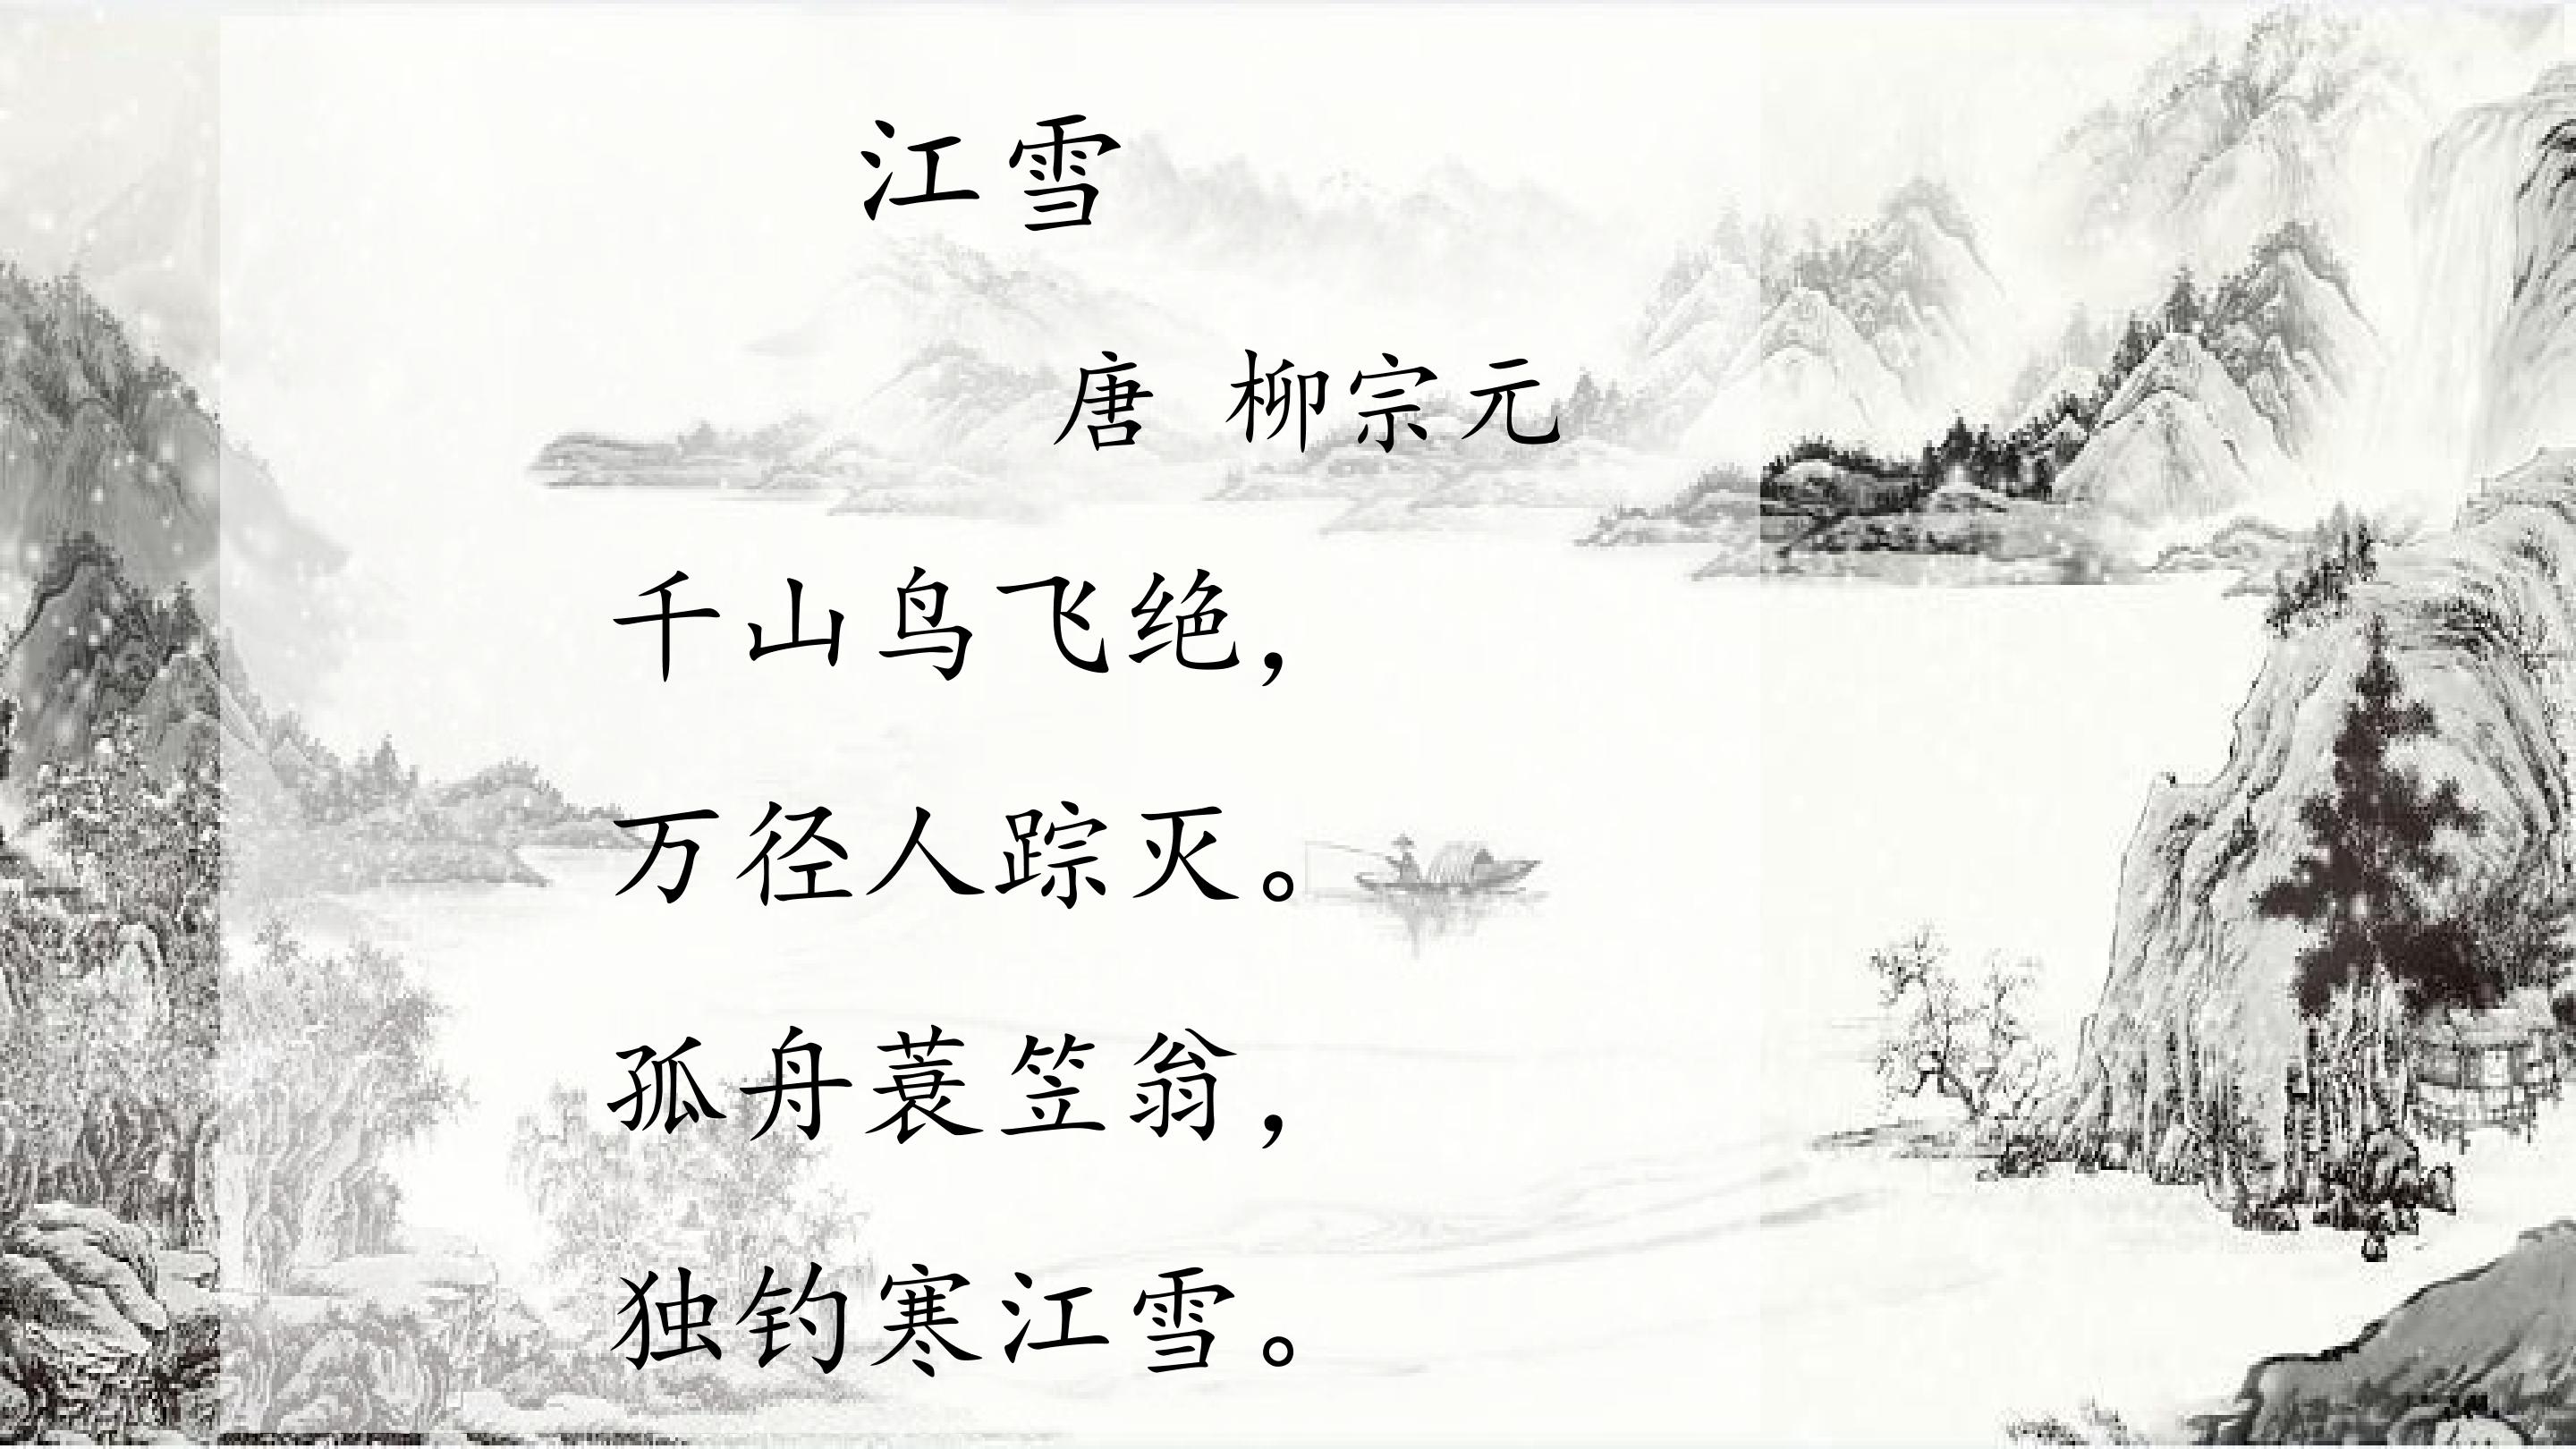 江雪
唐 柳宗元
千山鸟飞绝，
万径人踪灭。
孤舟蓑笠翁，
独钓寒江雪。